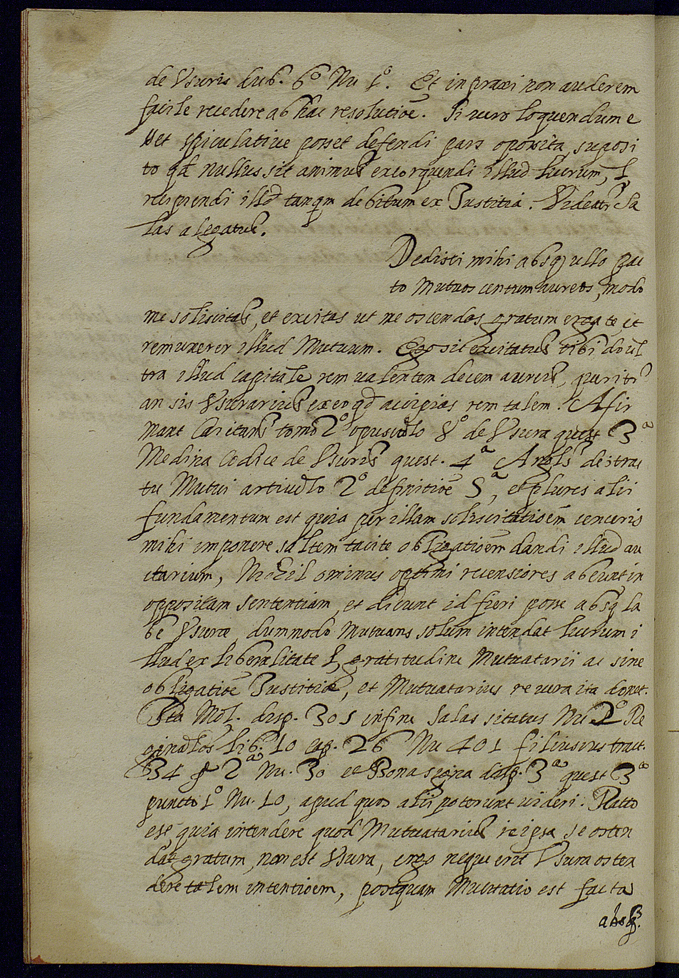 de Vsuris dub. 6º Nu 1º. Et in praxi non auderem
facile recedere ab hac resolutioẽ. Si vero loquendum e
set speculatiue posset defendi pars oposita, suposi
to qd nullus sit animus extorquendi illud lucrum, l
recipiendi illud tanqm debitum ex Justitia. Videatr Sa
las alegatus.
Dedisti mihi absq ullo pac
to Mutuos centum aureos, modo
me soliscitas, et excitas ut me ostendas gratum erga te et
remunerer illud Mutuum. Ego sic excitatus tibi do ul
tra illud capitale rem valentem decem aureis, queritr
an sis Vsurarius ex eo qd accipias rem talem. Afir
mant Caietanus tomo 2º opusculo 8º de Vsura quest 3ª
Medina Codice de Vsuris quest. 4ª Angls de contrac
tu Mutui articulo 2º definitioẽ 5ª, et plures alii
fundamentum est quia per illam soliscitatioem censeris
mihi imponere saltem tacite obligatioem dandi illud au
ctarium, Nihil ominus optimi recensiores abeunt in
oppositam sententiam, et dicunt id fieri posse absq la
be Vsuræ, dummodo Mutuans solum intendat lucrum i
llud ex liberalitate l gratitudine Mutuatarii ac sine
obligatioẽ Justitiæ, et Mutuatarius revera ita donet.
Ita Mol. disp. 305 in fine Salas sitatus Nu. 2º Re
ginaldos lib. 10 cap. 26 Nu 401 filiusius tract.
34 p 2ª Nu. 30 et Bonasigna disp. 3ª quest 3ª
puncto 1º Nu. 10, apud quos alii poterunt videri. Ratio
est quia intendere quod Mutuatarius re ipsa se osten
dat gratum, non est Vsura, ergo neque erit Vsura osten
dere talem intentioem, postquam Mutuatio est facta
absq.